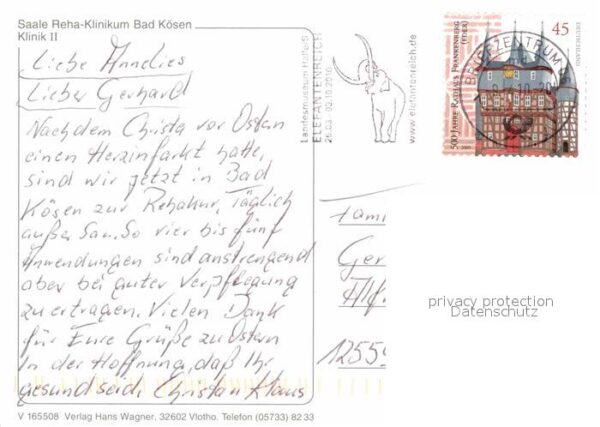 Saale Reha-Klinikum Bad Kösen
Klinik II
Liebe Annelies
Lieber Gerhard
Nachdem Christa vor Ostern
einen Herzinfarkt hatte,
sind wir jetzt in Bad
Kösen zur Rehakur. Täglich
außer Sa u. So vier bis fünf
Anwendungen sind anstrengend
aber bei guter Verpflegung
zu ertragen. Vielen Dank
für Eure Grüße zu Ostern
In der Hoffnung, daß Ihr
gesund seid. Christa u Klaus
V 165508 Verlag Hans Wagner, 32602 Vlotho. Telefon (05733) 82 33
Landesmuseum Halle/S
ELEFANTENREICH
26.03. - 03.10.2010
www.elefantenreich.de
500 JAHRE RATHAUS FRANKENBERG (EDER)
45
DEUTSCHLAND
BRIEFZENTRUM
Fami
Ger
1255
privacy protection
Datenschutz